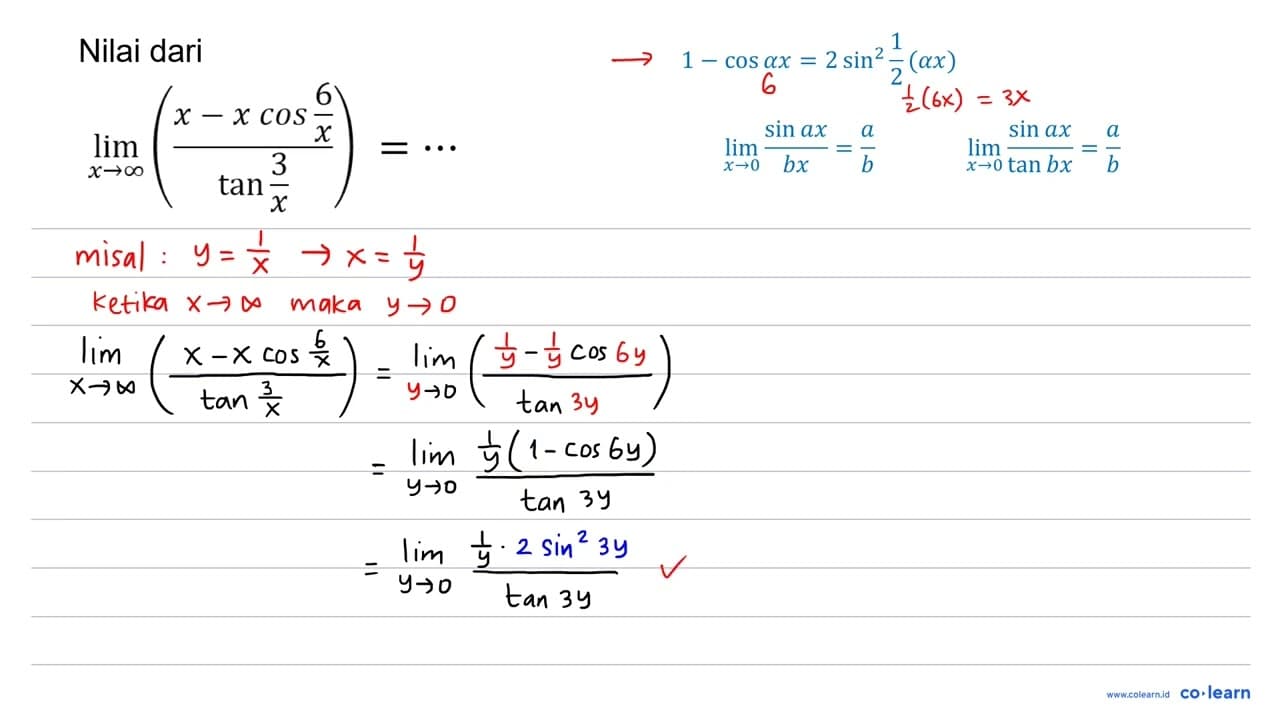 Nilai dari
lim x→∞ ((x − x cos 6/x) / (tan 3/x)) = ⋯
→ 1 − cos αx = 2 sin² 1/2 (αx)
6
1/2 (6x) = 3x
lim x→0 sin ax / bx = a/b
lim x→0 sin ax / tan bx = a/b
misal : y = 1/x → x = 1/y
ketika x → ∞ maka y → 0
lim x→∞ ((x − x cos 6/x) / (tan 3/x)) = lim y→0 ((1/y − 1/y cos 6y) / (tan 3y))
= lim y→0 (1/y (1 − cos 6y)) / (tan 3y)
= lim y→0 (1/y · 2 sin² 3y) / (tan 3y) ✓
www.colearn.id co·learn